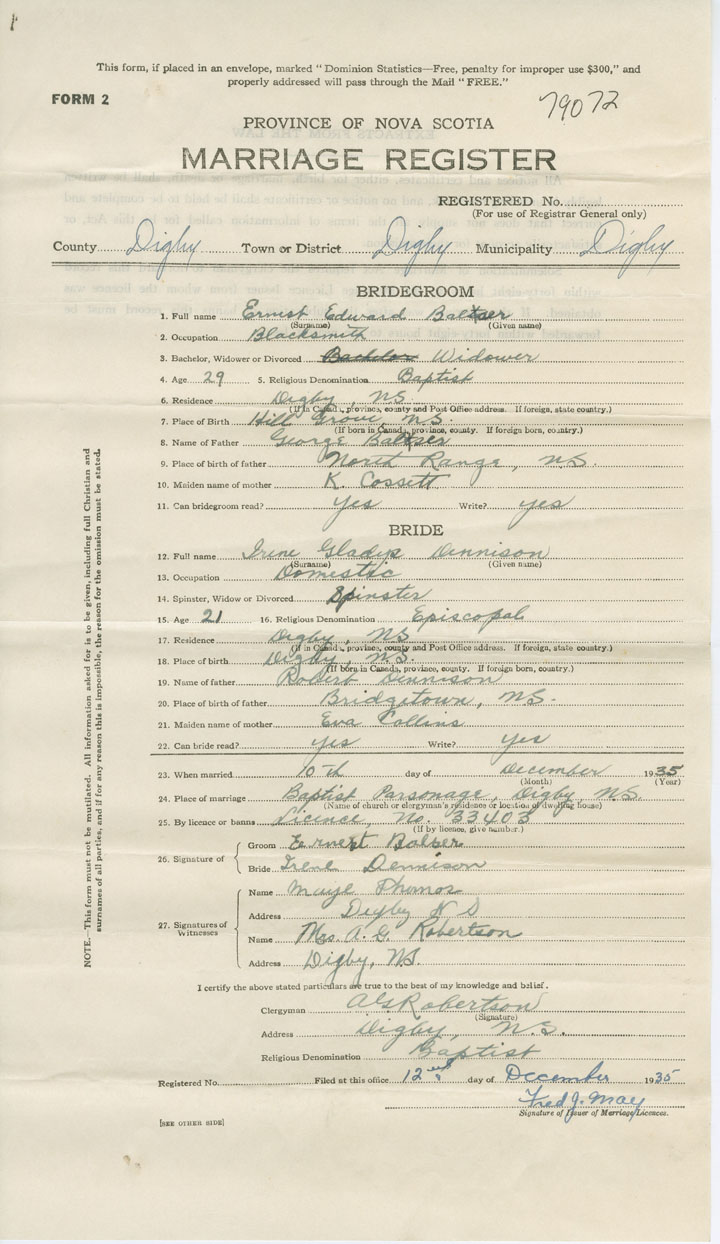 This form, if placed in an envelope, marked "Dominion Statistics—Free, penalty for improper use $300," and
properly addressed will pass through the Mail "FREE."
FORM 2
79072
PROVINCE OF NOVA SCOTIA
MARRIAGE REGISTER
REGISTERED No.
(For use of Registrar General only)
County Digby Town or District Digby Municipality Digby
BRIDEGROOM
1. Full name Ernest Edward Baltzer
(Surname) (Given name)
2. Occupation Blacksmith
3. Bachelor, Widower or Divorced Bachelor Widower
4. Age 29 5. Religious Denomination Baptist
6. Residence Digby, NS
(If in Canada, province, county and Post Office address. If foreign, state country.)
7. Place of Birth Hill Grove, N.S.
(If born in Canada, province, county. If foreign born, country.)
8. Name of Father George Baltzer
9. Place of birth of father North Range, N.S.
10. Maiden name of mother K. Cossett
11. Can bridegroom read? yes Write? yes
BRIDE
12. Full name Irene Gladys Dennison
(Surname) (Given name)
13. Occupation Domestic
14. Spinster, Widow or Divorced Spinster
15. Age 21 16. Religious Denomination Episcopal
17. Residence Digby, NS
(If in Canada, province, county and Post Office address. If foreign, state country.)
18. Place of birth Digby, N.S.
(If born in Canada, province, county. If foreign born, country.)
19. Name of father Robert Dennison
20. Place of birth of father Bridgetown, N.S.
21. Maiden name of mother Eva Collins
22. Can bride read? yes Write? yes
23. When married 10th day of December 1935
(Month) (Year)
24. Place of marriage Baptist Parsonage, Digby, N.S.
(Name of church or clergyman's residence or location of dwelling house)
25. By licence or banns Licence, No. 33403
(If by licence, give number.)
26. Signature of
Groom Ernest Balser
Bride Irene Dennison
27. Signatures of Witnesses
Name Maye
Address Digby N S
Name Mrs. A. G. Robertson
Address Digby, N.S.
I certify the above stated particulars are true to the best of my knowledge and belief.
Clergyman A G Robertson
(Signature)
Address Digby, N.S.
Religious Denomination Baptist
Registered No. Filed at this office 12nd day of December 1935
Fred J. May
Signature of Issuer of Marriage Licences.
[SEE OTHER SIDE]
NOTE.—This form must not be mutilated. All information asked for is to be given, including full Christian and
surnames of all parties, and if for any reason this is impossible, the reason for the omission must be stated.